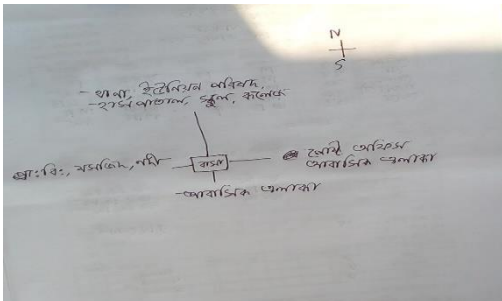 N
S
- থানা, ইউনিয়ন পরিষদ,
- হাসপাতাল, স্কুল, কলেজ
প্রা: বি:, মসজিদ, নদী
বাসা
পোষ্ট অফিস
আবাসিক এলাকা
- আবাসিক এলাকা